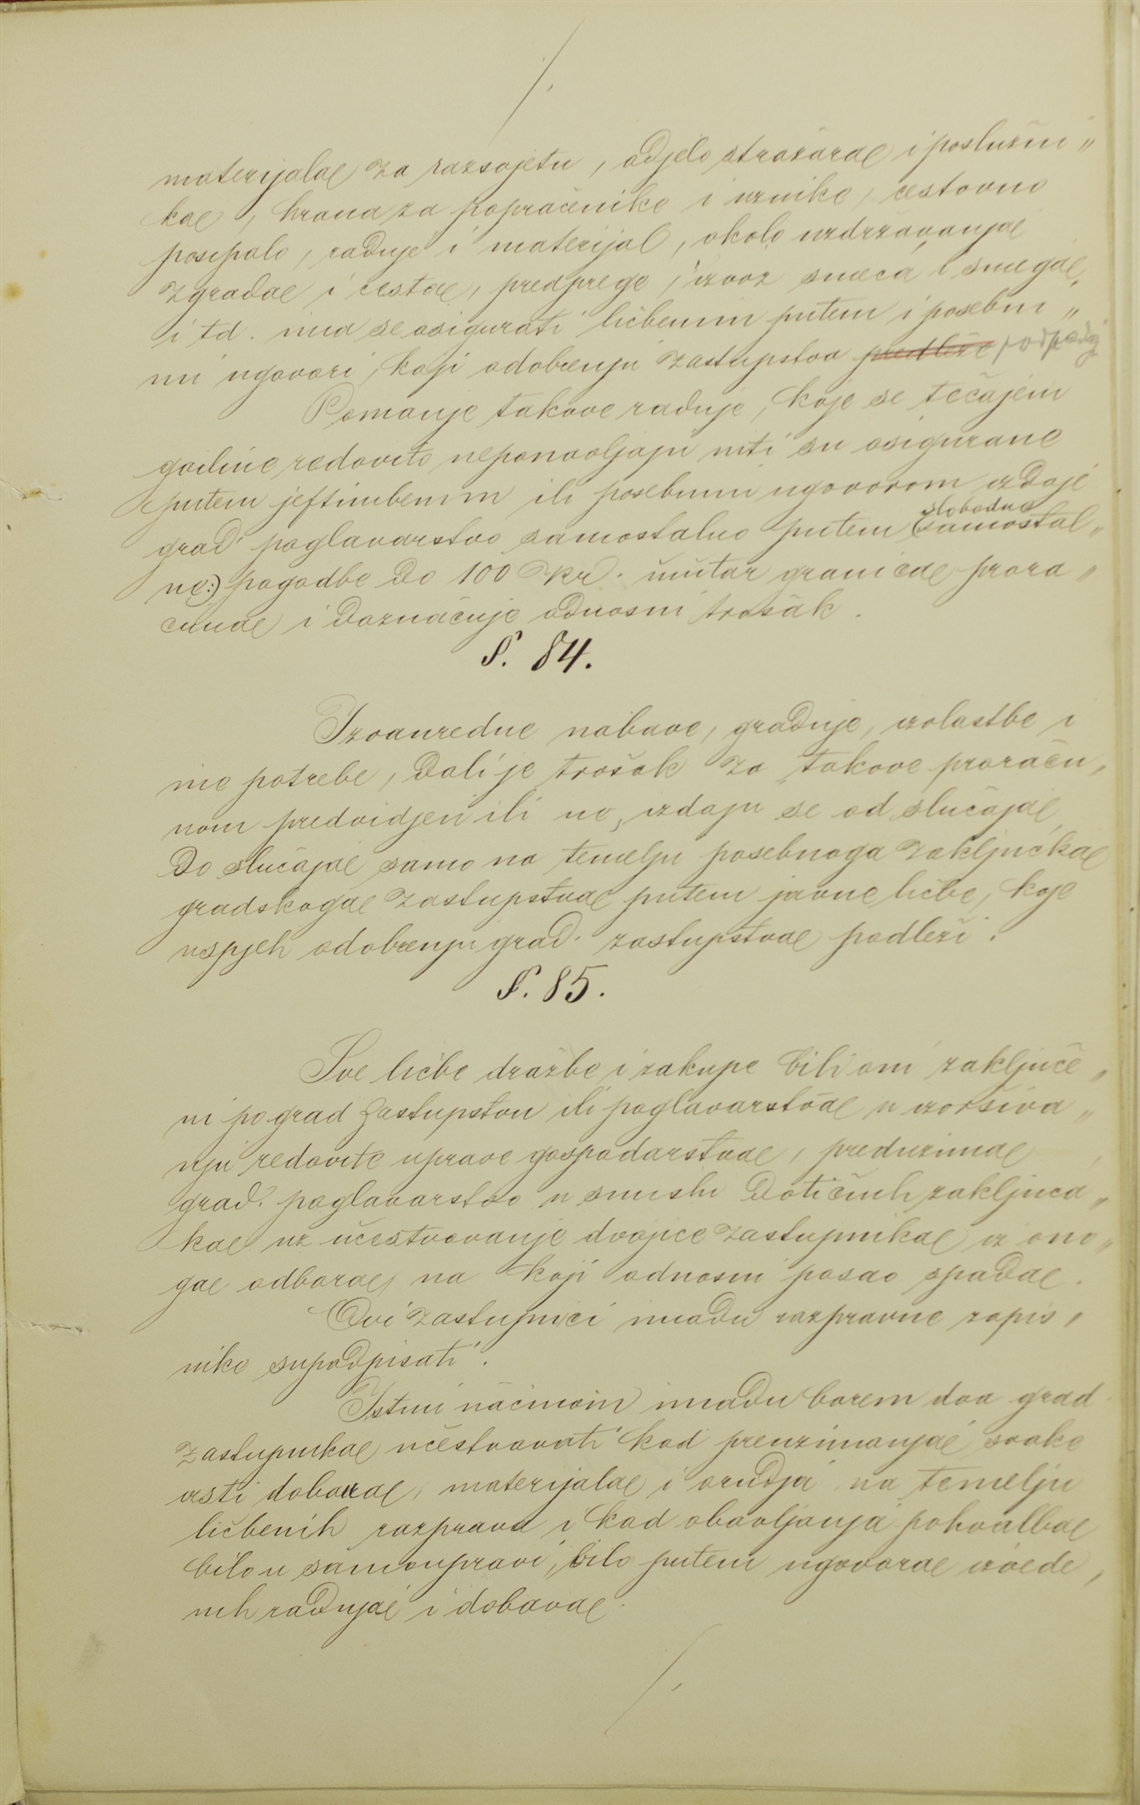 materijala za razsvjetu, odjelo stražara i poslužni„
ka, hrana za popraćenike i uznike, cestovno
posipalo, radnje i materijal, okolo uzdržavanja
zgrada i cesta, predprege, izvoz smeća i snega,
i td. ima se osigurati ličbenim putem i posebni„
mi ugovori, koji odobrenju zastupstva predleže podpadaj
Pomanje takove radnje, koje se tečajem
godine redovito neponavljaju niti su osigurane
putem jeftimbenim ili posebnim ugovorom izdaje
slobodne
grad poglavarstvo samostalno putem (samostal„
ne:) pogodbe do 100 Kr. unutar granica prora„
čuna i doznačuje odnosni trošak.
§. 84.
Izvanredne nabave, gradnje, izvlastbe i
ine potrebe, dali je trošak za takove proraču„
nom predvidjen ili ne, izdaju se od slučaja
do slučaja samo na temelju posebnoga zaključka
gradskoga zastupstva putem javne ličbe, koje
uspjeh odobrenju grad. zastupstva podleži.
§. 85.
Sve ličbe dražbe i zakupe bili oni zaključe„
ni po grad zastupstvu ili poglavarstva u izvršiva„
nju redovite uprave gospodarstva, preduzima
grad. poglavarstvo u smislu dotičnih zaključa„
ka uz učestvovanje dvojice zastupnika iz ono„
ga odbora, na koji odnosni posao spada.
Ovi zastupnici imadu razpravne zapis„
nike supodpisati.
Istim načinom imadu barem dva grad
zastupnika učestvovati kod preuzimanja svake
vrsti dobava, materijala i orudja na temelju
ličbenih razprava i kod obavljanja pohvalba
bilo u samoupravi, bilo putem ugovora izvede„
nih radnja i dobava.